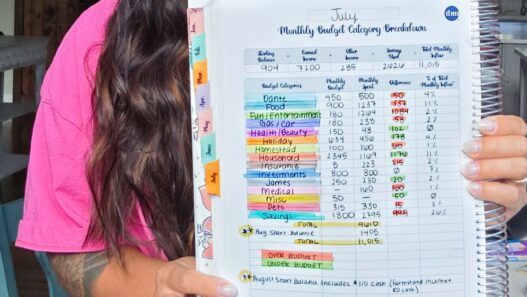 July
tbm
Monthly Budget Category Breakdown
Starting Balance + Earned Income + Other Income + Savings = Total Monthly Inflow
904 7200 285 2626 11,015
Budget Categories Monthly Budget Monthly Spent Difference % of Total Monthly Inflow
Dante 450 500 50 4%
Food 900 1237 337 11%
Fun/Entertainment 180 1264 1084
Gas/Car 180 238 58 2%
Health/Beauty 150 48 102 0
Holiday 634 456 178 4%
Homestead 100 160 1%
Household 2345 1169 1176 11%
Insurance 2%
Investments 800 800 0 7%
James 250 230 20 2%
Medical - 160 160 1%
Misc 50 0 50 0
Pets 315 330 15
Savings 1800 2795 995
TOTAL 9610
Aug Start Balance 1405
TOTAL 11,015
OVER BUDGET
UNDER BUDGET
August Start Balance includes $110 Cash (Farmstand Income)
Mar
Apr
May
June
July